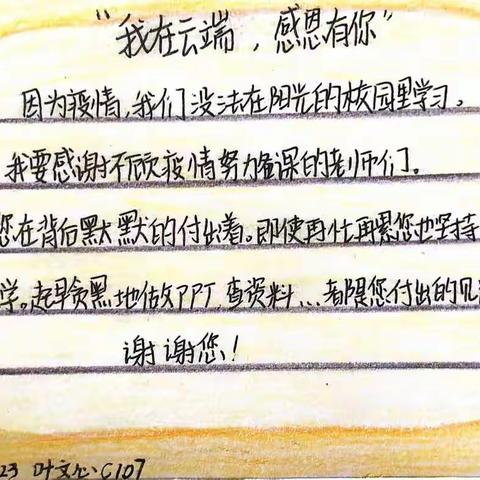 “我在云端，感恩有你”
因为疫情，我们没法在阳光的校园里学习。
我要感谢不顾疫情努力备课的老师们。
您在背后默默的付出着。即使再忙再累您也坚持
学。起早贪黑地做PPT、查资料…都是您付出的见
谢谢您！
23 叶文心 C107